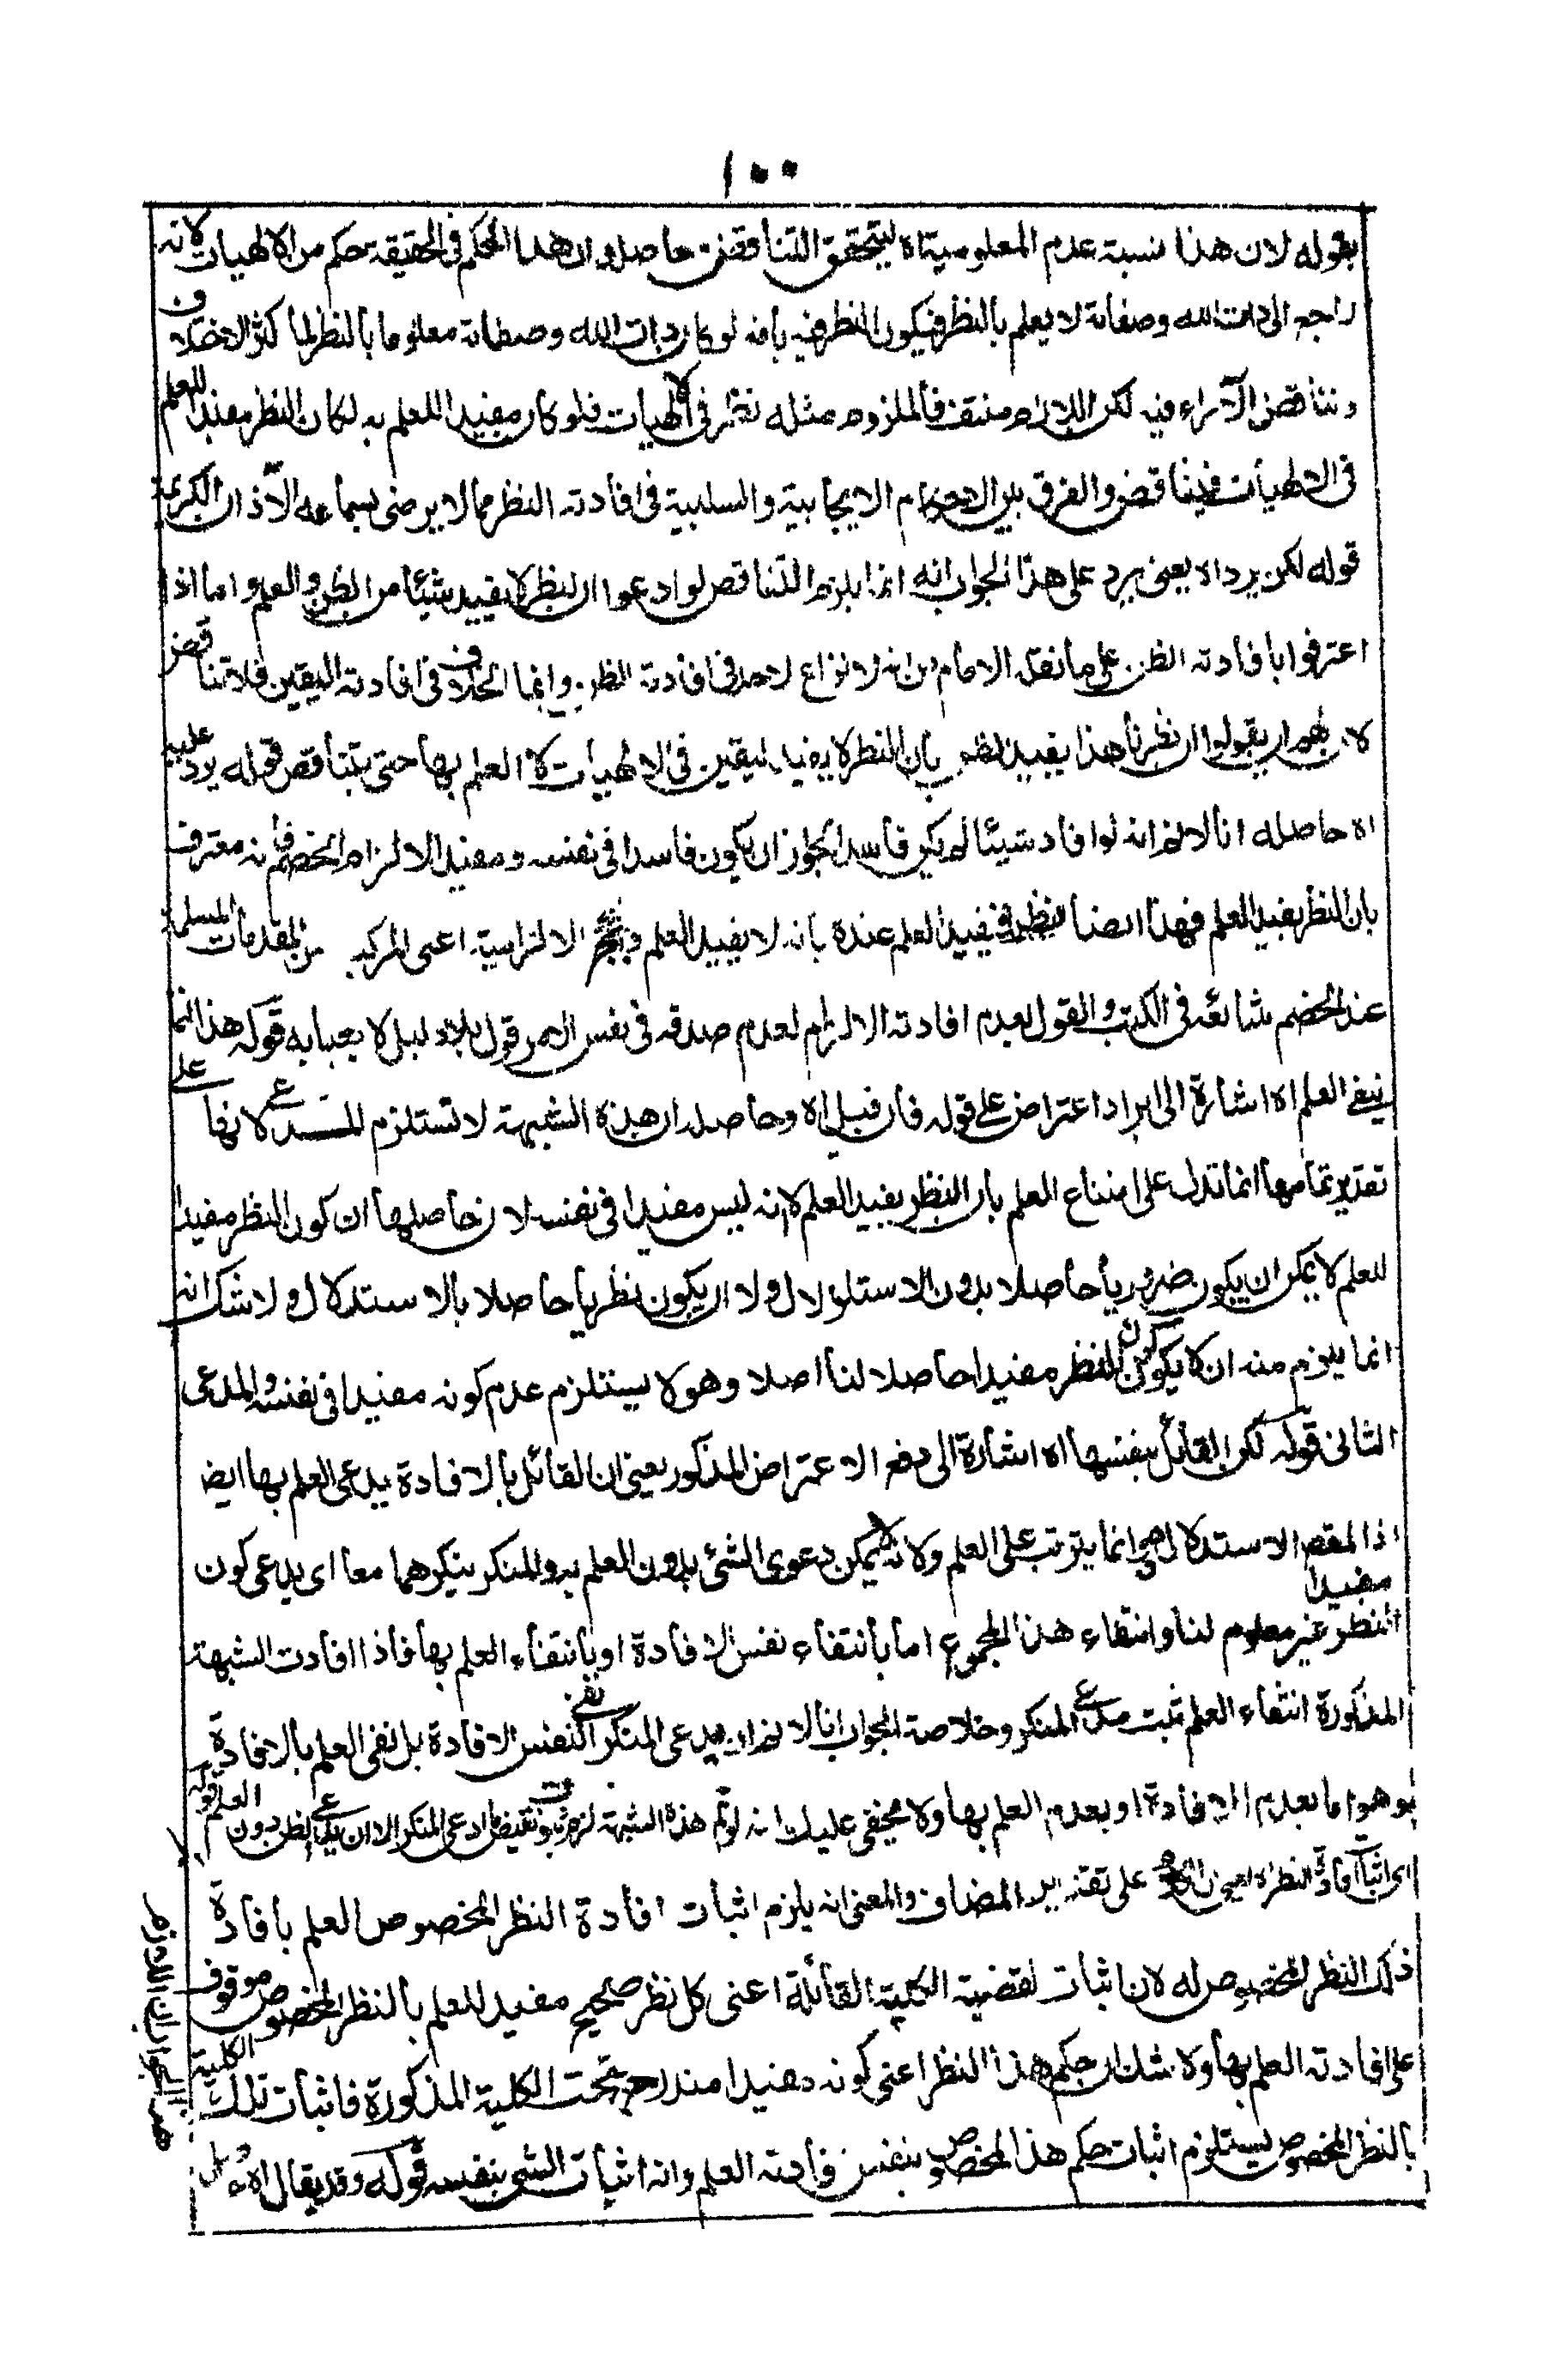 ١٠٠
بقوله لان هذا نسبة عدم المعلومية اه ليتحقق التناقض حاصله ان هذا الحكم فى الحقيقة حكم من الالهيات لانه
راجع الى ذات الله وصفاته لا يعلم بالنظر فيكون النظر فيه بأنه لو كان ذات الله وصفاته معلوما بالنظر لما كثر الاختلاف
وتناقض الآراء فيه لكن اللازم منتف فالملزوم مثله نظر فى الالهيات فلو كان مفيدا للعلم به لكان النظر مفيدا للعلم
فى الالهيات فيناقض والفرق بين الاحكام الايجابية والسلبية فى افادته النظر مما لا يرضى بسماعه الآذان الكريمة
قوله لكن يرد اه يعنى يرد على هذا الجواب انه انما يلزم التناقض لو ادعوا ان النظر لا يفيد شيئا من الظن والعلم واما اذا
اعترفوا بافادته الظن على ما نقله الامام من انه لا نزاع لاحد فى افادته الظن وانما الخلاف فى افادته اليقين فلا تناقض
لان لهم ان يقولوا ان نظرنا هذا يفيد الظن بأن النظر لا يفيد اليقين فى الالهيات لا العلم بها حتى يتناقض قوله يرد عليه
اه حاصله انا لا نم انه لو افاد شيئا لم يكن فاسدا لجواز ان يكون فاسدا فى نفسه ومفيدا لالزام الخصم فانه معترف
بان النظر يفيد العلم فهذا ايضا نظر فيفيد العلم عنده بانه لا يفيد العلم والحجج الالزامية اعنى المركبة من المقدمات المسلمة
عند الخصم شائعة فى الكتب والقول بعدم افادته الالزام لعدم صدقه فى نفس الامر قول بلا دليل لا يعبأ به قوله هذا انما
ينفى العلم اه اشارة الى ايراد اعتراض على قوله فان قيل اه وحاصله ان هذه الشبهة لا تستلزم المدعى لانها على
تقدير تمامها انما تدل على امتناع العلم بان النظر يفيد العلم لا انه ليس مفيدا فى نفسه لان حاصلها ان كون النظر مفيدا
للعلم لا يمكن ان يكون ضروريا حاصلا بدون الاستدلال ولا ان يكون نظريا حاصلا بالاستدلال ولا شك انه
انما يلزم منه ان لا يكون كون النظر مفيدا حاصلا لنا اصلا وهو لا يستلزم عدم كونه مفيدا فى نفسه والمدعى
الثانى قوله لكن القائل بنفسها اه اشارة الى دفع الاعتراض المذكور يعنى ان القائل بالافادة يدعى العلم بها ايض
اذ المقصد الاستدلال انما يترتب على العلم ولانه لا يمكن دعوى الشئ بدون العلم به والمنكر ينكرهما معا اى يدعى كون
النظر مفيدا غير معلوم لنا وانتفاء هذا المجموع اما بانتفاء نفس الافادة او بانتفاء العلم بها فاذا افادت الشبهة
المذكورة انتفاء العلم ثبت مدعى المنكر وخلاصة الجواب انا لا نم ان مدعى المنكر نفى نفس الافادة بل نفى العلم بالافادة
وهو اما بعدم الافادة او بعدم العلم بها ولا يخفى عليك انه لو تم هذه الشبهة لزم ثبوت نقيض ما ادعى المنكر الا ان يدعى الظن دون العلم قوله
اى اثبات افادة النظر اه يعنى ان على تقدير المضاف والمعنى انه يلزم اثبات افادة النظر المخصوص العلم بافادة
ذلك النظر المخصوص له لان اثبات القضية الكلية القائلة اعنى كل نظر صحيح مفيد للعلم بالنظر المخصوص موقوف
على افادته العلم بها ولا شك ان حكم هذا النظر اعنى كونه مفيدا مندرج تحت الكلية المذكورة فاثبات تلك الكلية
بالنظر المخصوص يستلزم اثبات حكم هذا المخصوص بنفس فادته العلم وانه اثبات الشئ بنفسه قوله وقد يقال اه